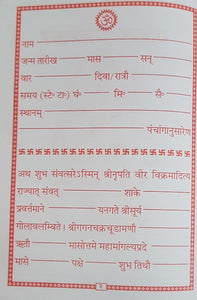 ॐ
नाम
जन्म तारीख मास सन्
वार दिवा/रात्रौ
समय (स्टैं॰ टा॰) घं॰ मि॰ सै॰
स्थानम्
पंचांगानुसारेण
अथ शुभ संवत्सरेऽस्मिन् श्रीनृपति वीर विक्रमादित्य
राज्यात् संवत् शाके
प्रवर्त्तमाने यनगते श्रीसूर्य
गोलावलम्बिते। श्रीगगनचक्रचूडामणौ
ऋतौ मासोत्तमे महामांगल्यप्रदे
मासे पक्षे शुभ तिथौ